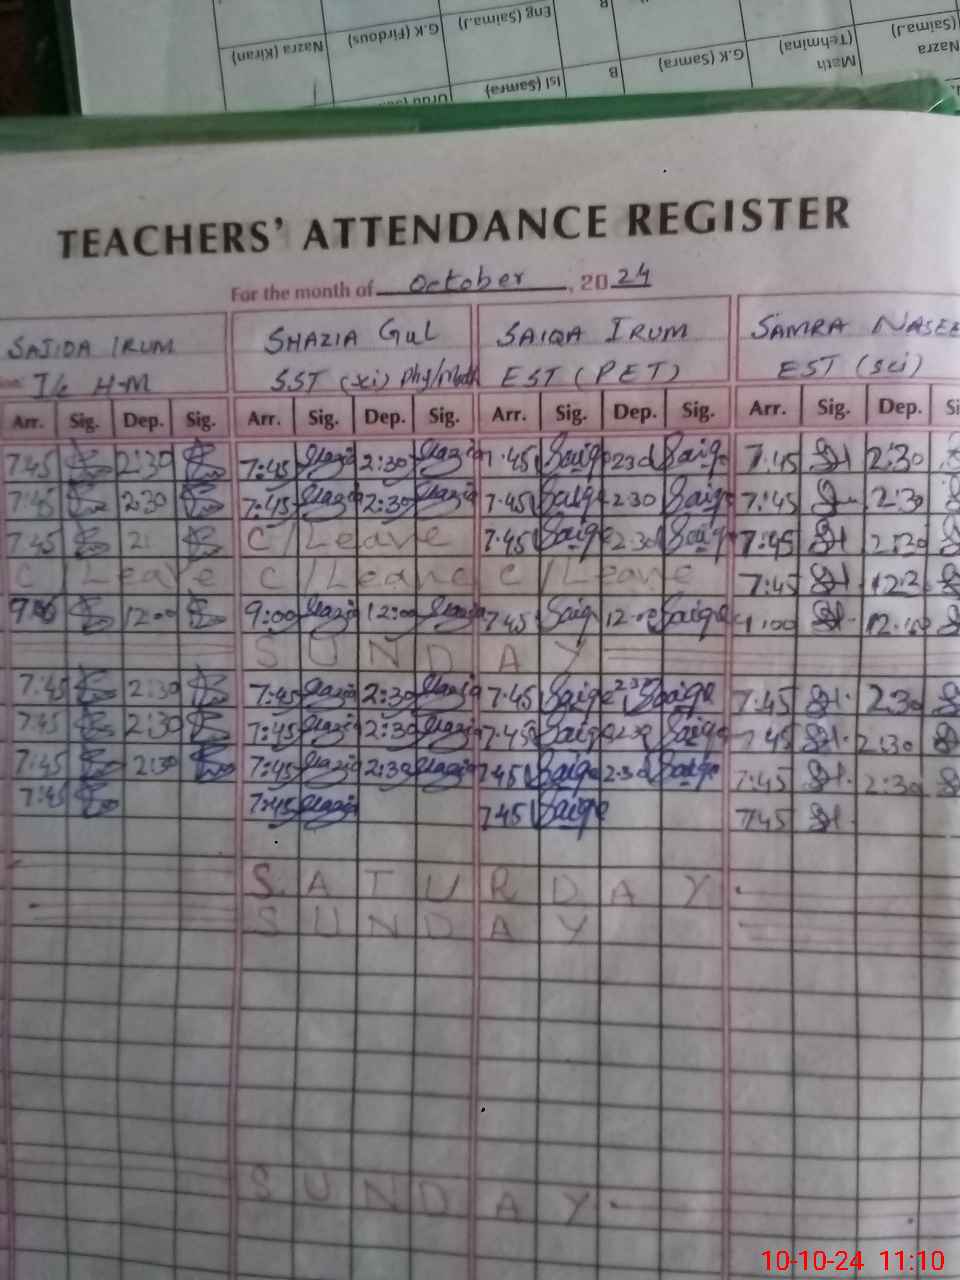 Nazra (Kiran) G.K (Firdous) Eng (Saima.J) B
Isl (Samra) B G.K (Samra) Math (Tehmina) Nazra (Saima.J)
TEACHERS' ATTENDANCE REGISTER
For the month of October, 2024
SAJIDA IRUM SHAZIA GUL SAIQA IRUM SAMRA NASEE
I/c H-M SST (sci) Phy/Math EST (PET) EST (sci)
Arr. Sig. Dep. Sig. Arr. Sig. Dep. Sig. Arr. Sig. Dep. Sig. Arr. Sig. Dep. Si
7:45 2:30 7:45 Shazia 2:30 Shazia 7.45 Saiqa 230 Saiqa 7:45 2:30
7:45 2:30 7:45 Shazia 2:30 Shazia 7.45 Saiqa 2.30 Saiqa 7:45 2:30
7:45 C/Leave 7.45 Saiqa 2.30 Saiqa 7:45 2:30
C/Leave C/Leave C/Leave 7:45
12:00 9:00 Shazia 12:00 Shazia 7.45 Saiq Saiqa
SUNDAY
7:45 2:30 7:45 Shazia 2:30 Shazia 7.45 Saiqa Saiqa 7:45 2:30
7:45 2:30 7:45 Shazia 2:30 Shazia 7.45 Saiqa Saiqa 7:45 2:30
7:45 2:30 7:45 Shazia 2:30 Shazia 7.45 Saiqa 2.30 Saiqa 7:45 2:30
7:45 7:45 Shazia 7.45 Saiqa 7:45
SATURDAY
SUNDAY
SUNDAY
10-10-24 11:10